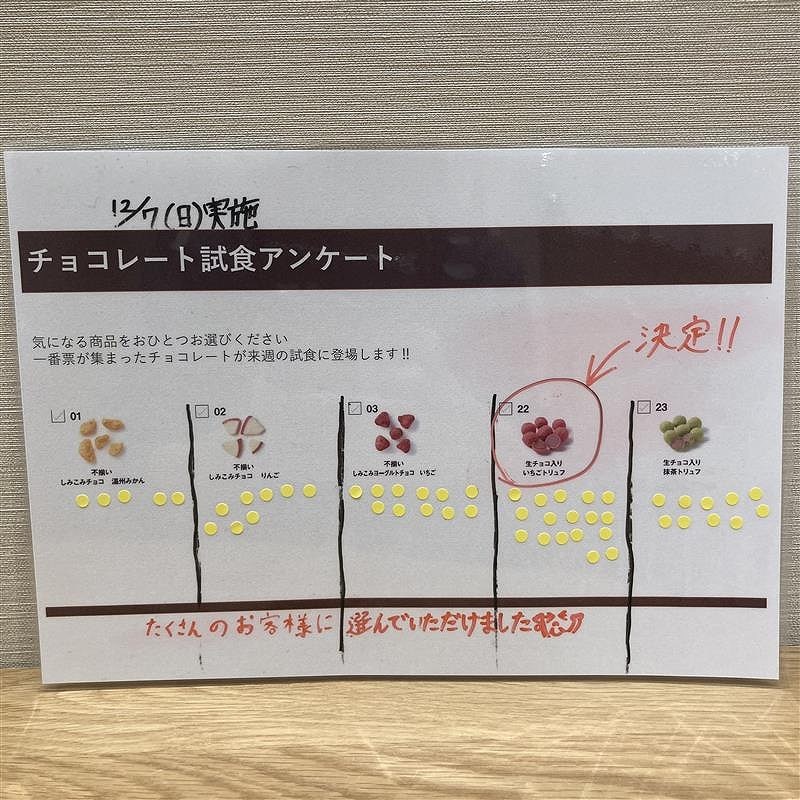 12/7(日)実施
チョコレート試食アンケート
気になる商品をおひとつお選びください
一番票が集まったチョコレートが来週の試食に登場します!!
決定!!
01
不揃い
しみこみチョコ 温州みかん
02
不揃い
しみこみチョコ りんご
03
不揃い
しみこみヨーグルトチョコ いちご
22
生チョコ入り
いちごトリュフ
23
生チョコ入り
抹茶トリュフ
たくさんのお客様に選んでいただけました